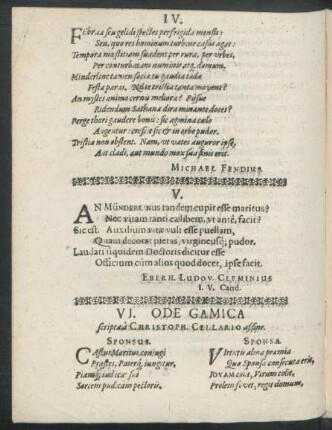 IV.
FEbrua seu gelidi spectes perfrigida mensis:
Seu, quo res hominum turbine casus agat:
Tempora mœstitiam suadent per rura, per urbes,
Per conturbatam numinis atq; domum.
Minderline tamen socia tu gaudia tæda
Festa paras. Nil te tristia tanta movent?
An mystes animo cernis meliora? Piisue
Ridendum Sathana dira minante doces?
Perge thori gaudere bonis: sic agmina cælo
Augentur: crescis sic & in urbe pudor.
Tristia non obstent. Nam, ut vates auguror ipse,
Aut cladi, aut mundo mox sua finis erit.
MICHAEL FENDIUS.
V.
AN MÜNDERLINUS tandem cupit esse maritus?
Nec vitam tanti cælibem, vt antè, facit?
Sic est. Auxilium vitæ vult esse puellam,
Quam decorat pietas, virgineusq; pudor.
Laudari siquidem Doctoris dicitur esse
Officium cùm alios quod docet, ipse facit.
EBERH. LUDOV. CLEMINIUS
I. V. Cand.
VI. ODE GAMICA
scripta à CHRISTOPH. CELLARIO affine.
SPONSUS.
CAstus Maritus conjugi
Præstes, Paterq; jungitur,
Piamq; judicat sui
Sortem pudicam pectoris.
SPONSA.
VIrtutis alma præmia
Quæ Sponsa consecuta erit,
JOVAM colit, Virum colit,
Prolem fovet, regit domum,